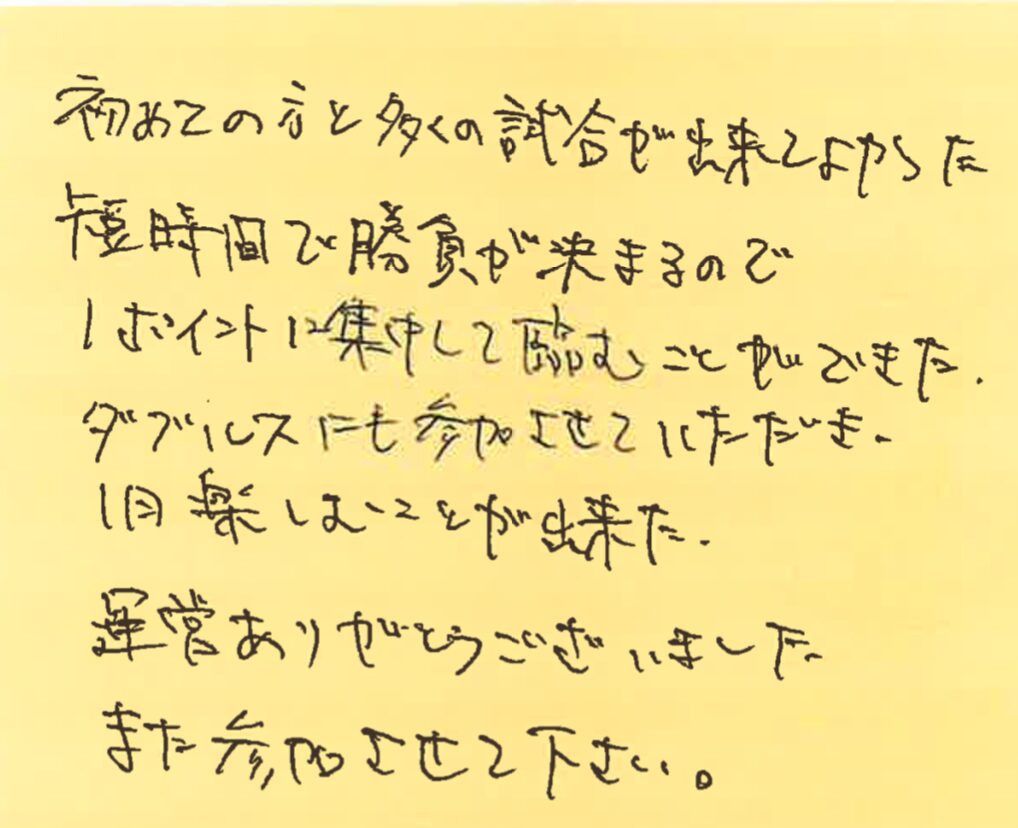 初めての方と多くの試合が出来てよかった
短時間で勝負が決まるので
1ポイントに集中して臨むことができた.
ダブルスにも参加させていただき、
1日楽しむことが出来た.
運営ありがとうございました
また参加させて下さい。